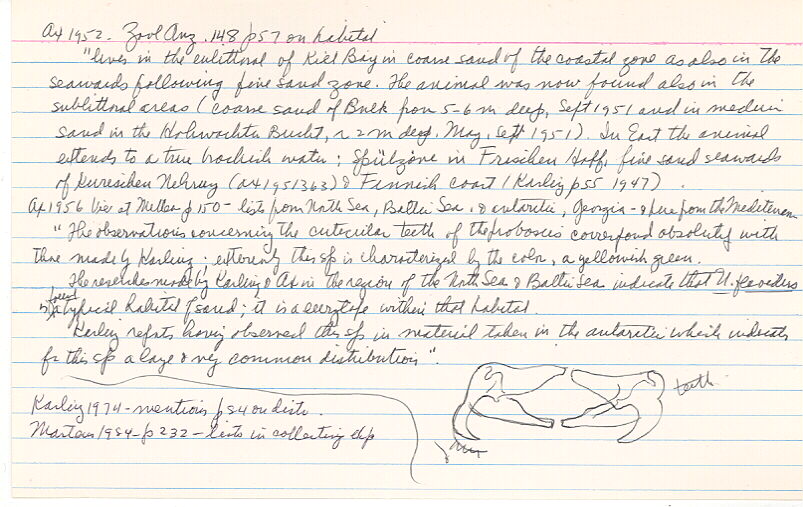 Ax 1952. Zool Anz. 148 p57 on habitat
"lives in the eulittoral of Kiel Bay in coarse sand of the coastal zone as also in the
seawards following fine sand zone. The animal was now found also in the
sublittoral areas (coarse sand of Bulk from 5-6 m deep, Sept 1951 and in medium
sand in the Hohwachter Bucht, ~ 2 m deep, May, Sept 1951). In East the animal
extends to a true brackish water; Spülzone in Frischen Haff, fine sand seawards
of Kurischen Nehrung (Ax 1951 363) & Finnish coast (Karling p55 1947).
Ax 1956 Vie et Milieu p150 - lists from North Sea, Baltic Sea, & antarctic, Georgia - & here from the Mediterran.
"The observations concerning the cuticular teeth of the proboscis correspond absolutely with
those made by Karling. externally this sp is characterized by the color, a yellowish green.
The researches made by Karling & Ax in the region of the North Sea & Baltic Sea indicate that U.
is a typical habitat of sand; it is a within that habitat.
Karling reports having observed this sp in material taken in the antarctic which indicates
for this sp a large & very common distribution".
Karling 1974 - mentions p84 on distr.
Martens 1984 - p232 - lists in collecting
teeth